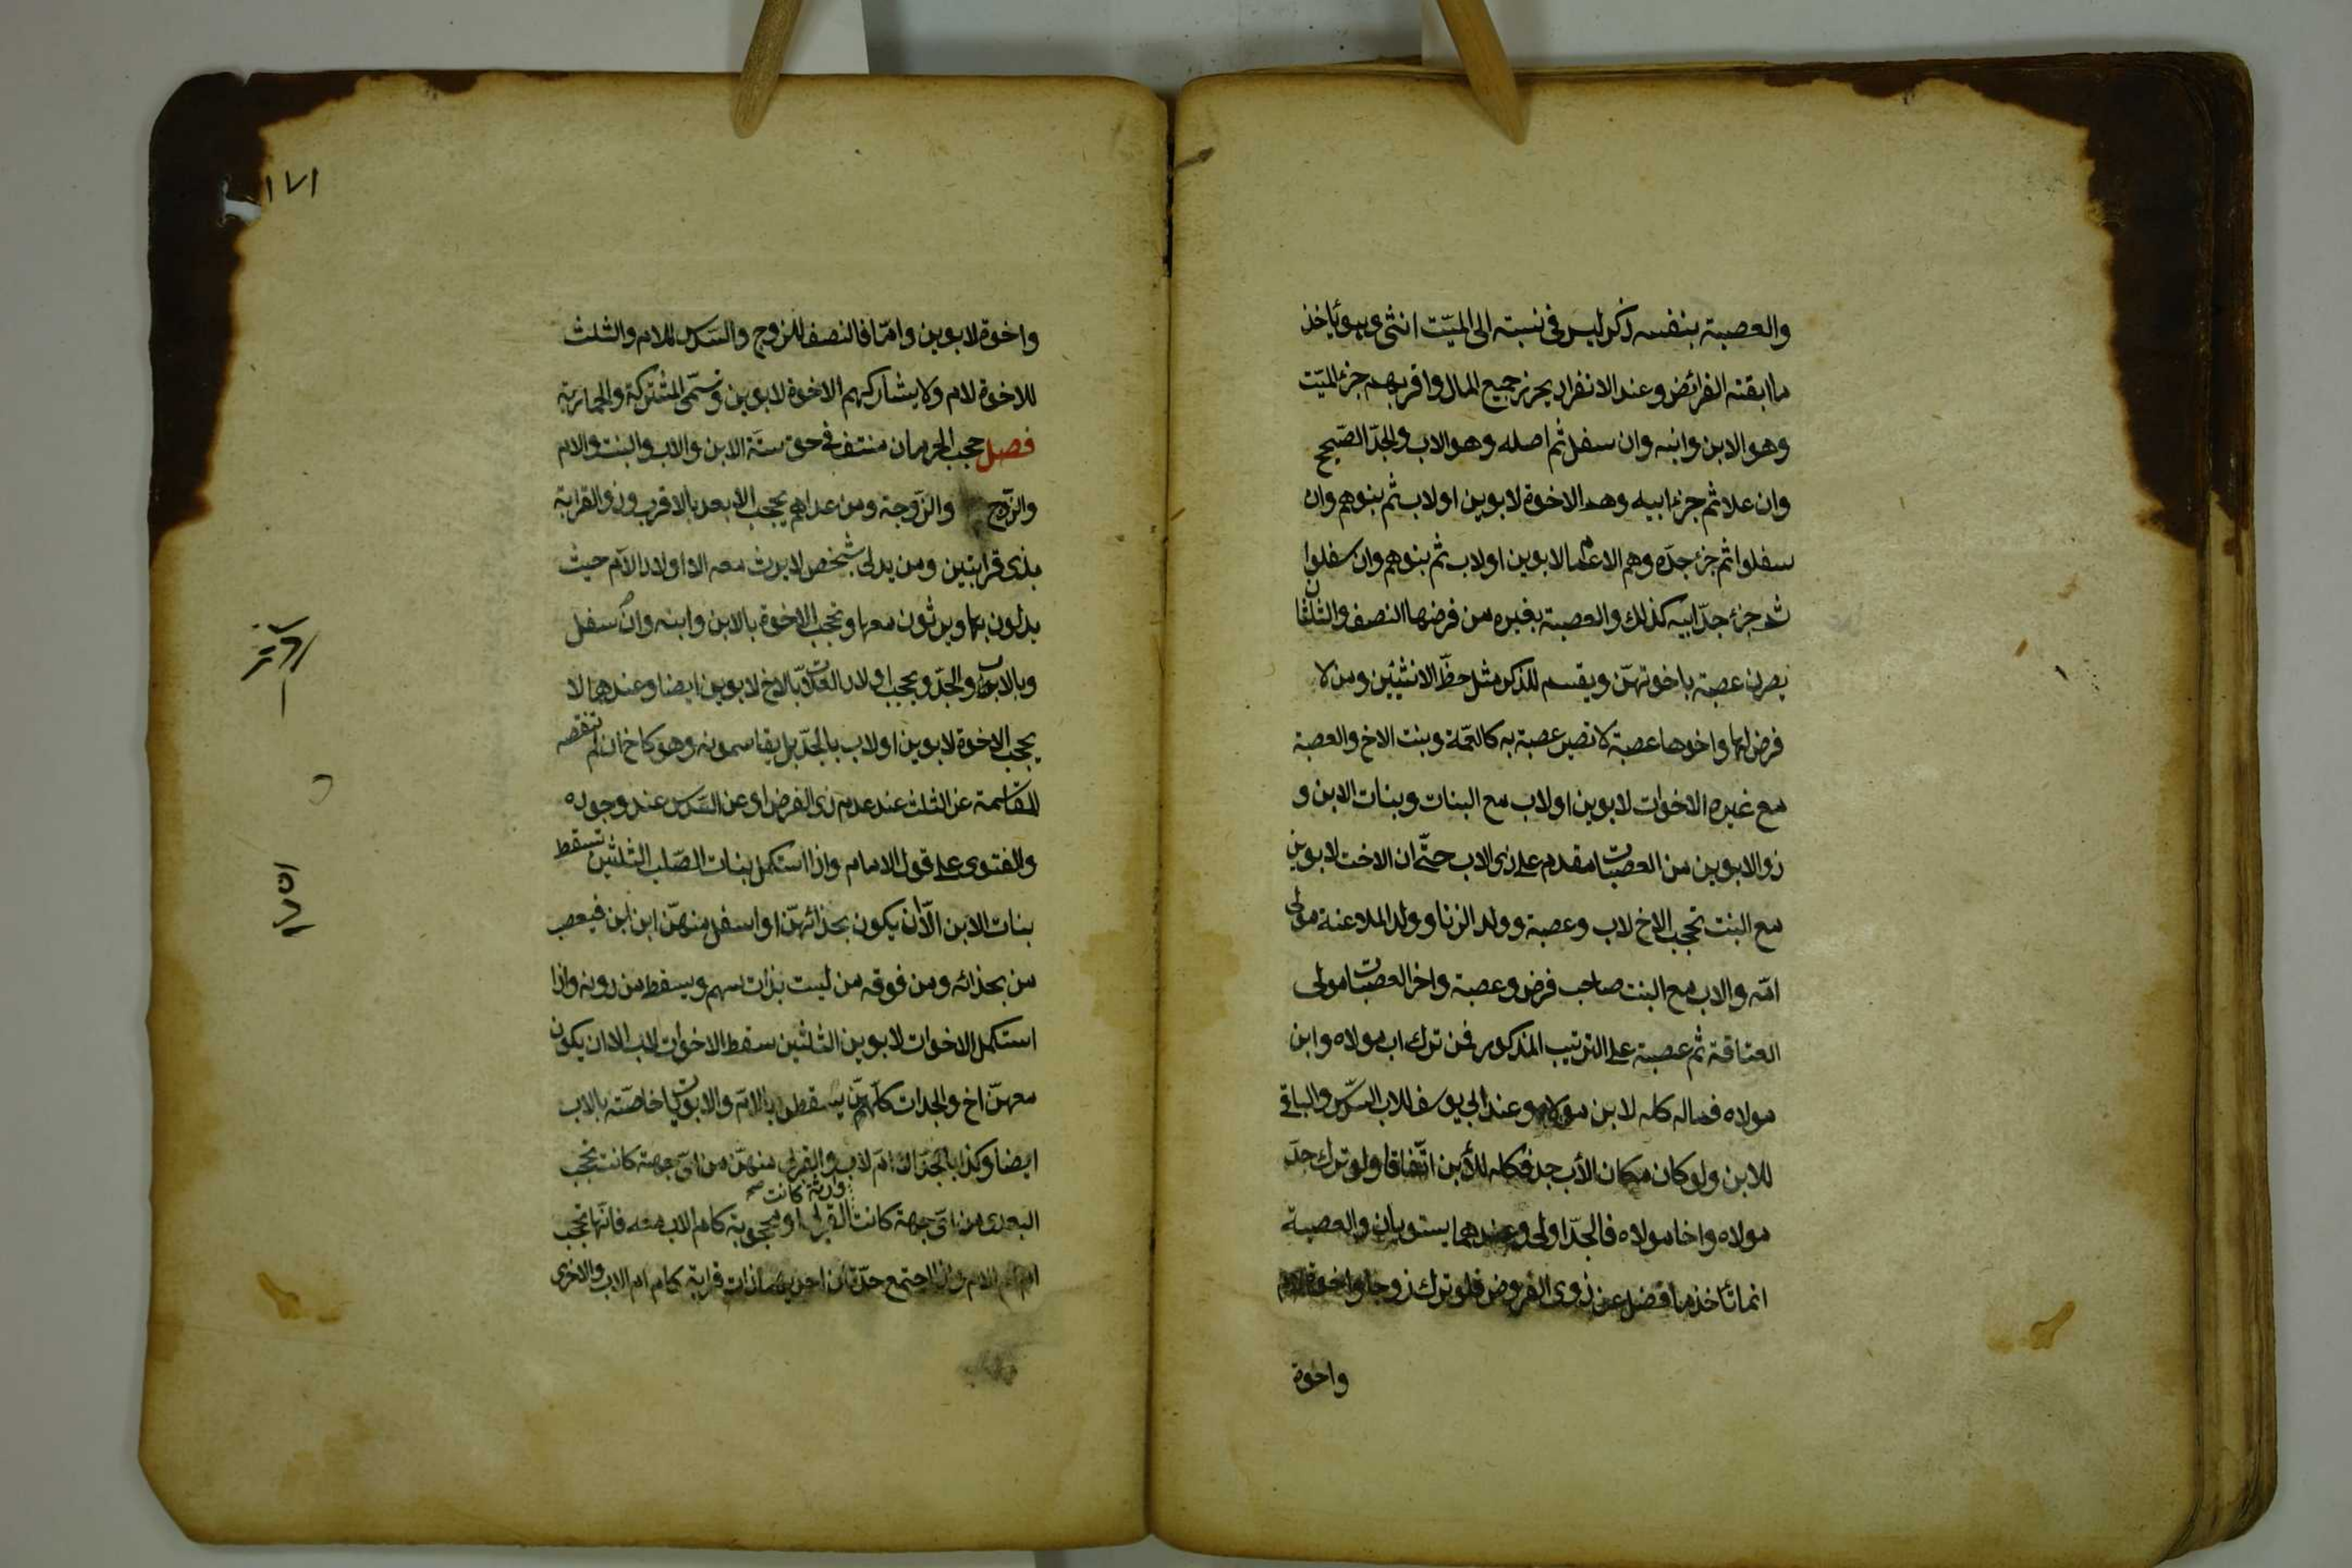 والعصبة بنفسه ذكر ليس فى نسبته الى الميّت انثى وهو يأخذ
ما ابقته الفرائض وعند الانفراد يحرز جميع المال واقربهم جزء الميّت
وهو الابن وابنه وان سفل ثم اصله وهو الاب والجدّ الصّحيح
وان علا ثم جزء ابيه وهم الاخوة لابوين او لاب ثم بنوهم وان
سفلوا ثم جزء جدّه وهم الاعمام لابوين او لاب ثم بنوهم وان سفلوا
ثم جزء جدّ ابيه كذلك والعصبة بغيره من فرضها النصف والثلثان
يصرن عصبة باخوتهنّ ويقسم للذكر مثل حظّ الانثيين ومن لا
فرض لها واخوها عصبة لا تصير عصبة به كالعمّة وبنت الاخ والعصبة
مع غيره الاخوات لابوين او لاب مع البنات وبنات الابن و
ذو الابوين من العصبات مقدم على ذى الاب حتّى ان الاخت لابوين
مع البنت تحجب الاخ لاب وعصبة وولد الزنا وولد الملاعنة مولى
امّه والاب مع البنت صاحب فرض وعصبة واخر العصبات مولى
العتاقة ثم عصبته على الترتيب المذكور فمن ترك اب مولاه وابن
مولاه فماله كله لابن مولاه وعند ابى يوسف للاب السّدس والباقى
للابن ولو كان مكان الأب جد فكله للأبن اتّفاقا ولو ترك جدّ
مولاه واخا مولاه فالجدّ اولى وعندهما يستويان والعصبة
انما تأخذ ما فضل عن ذوى الفروض فلو ترك زوجا واخوة لام
واخوة
١٧١
واخوة لابوين وامّا فالنصف للزوج والسّدس للام والثلث
للاخوة لام ولا يشاركهم الاخوة لابوين وتسمّى المشتركة والحمارية
فصل حجب الحرمان منتف فى حق ستّة الابن والاب والبنت والام
والزّوج والزّوجة ومن عداهم يحجب الابعد بالاقرب وذو القرابة
بذى قرابتين ومن يدلى بشخص لا يرث معه الا اولاد الأم حيث
يدلون بها ويرثون معها وتحجب الاخوة بالابن وابنه وان سفل
وبالاب والجدّ ويحجب اولاد العلات بالاخ لابوين ايضا وعندهما لا
يحجب الاخوة لابوين او لاب بالجدّ بل يقاسمونه وهو كاخ ان لم تنقصه
المقاسمة عن الثلث عند عدم ذى الفرض او عن السّدس عند وجوده
والفتوى على قول الامام واذا استكمل بنات الصّلب الثلثين تسقط
بنات الابن الّا ان يكون بحذائهنّ او اسفل منهنّ ابن ابن فيعصب
من بحذائه ومن فوقه من ليست بذات سهم ويسقط من دونه واذا
استكمل الاخوات لابوين الثلثين سقط الاخوات لاب الا ان يكون
معهنّ اخ والجدات كلّهنّ يسقطن بالامّ والابويات خاصّة بالاب
ايضا وكذا بالجدّ الا امّ لاب والقربى منهنّ من اىّ جهة كانت تحجب
البعدى من اىّ جهة كانت القربى وارثة كانت صح او محجوبة كام الاب معه فانّها تحجب
ام ام الام واذا اجتمع جدّتان احديهما ذات قرابة كام ام الاب والاخرى